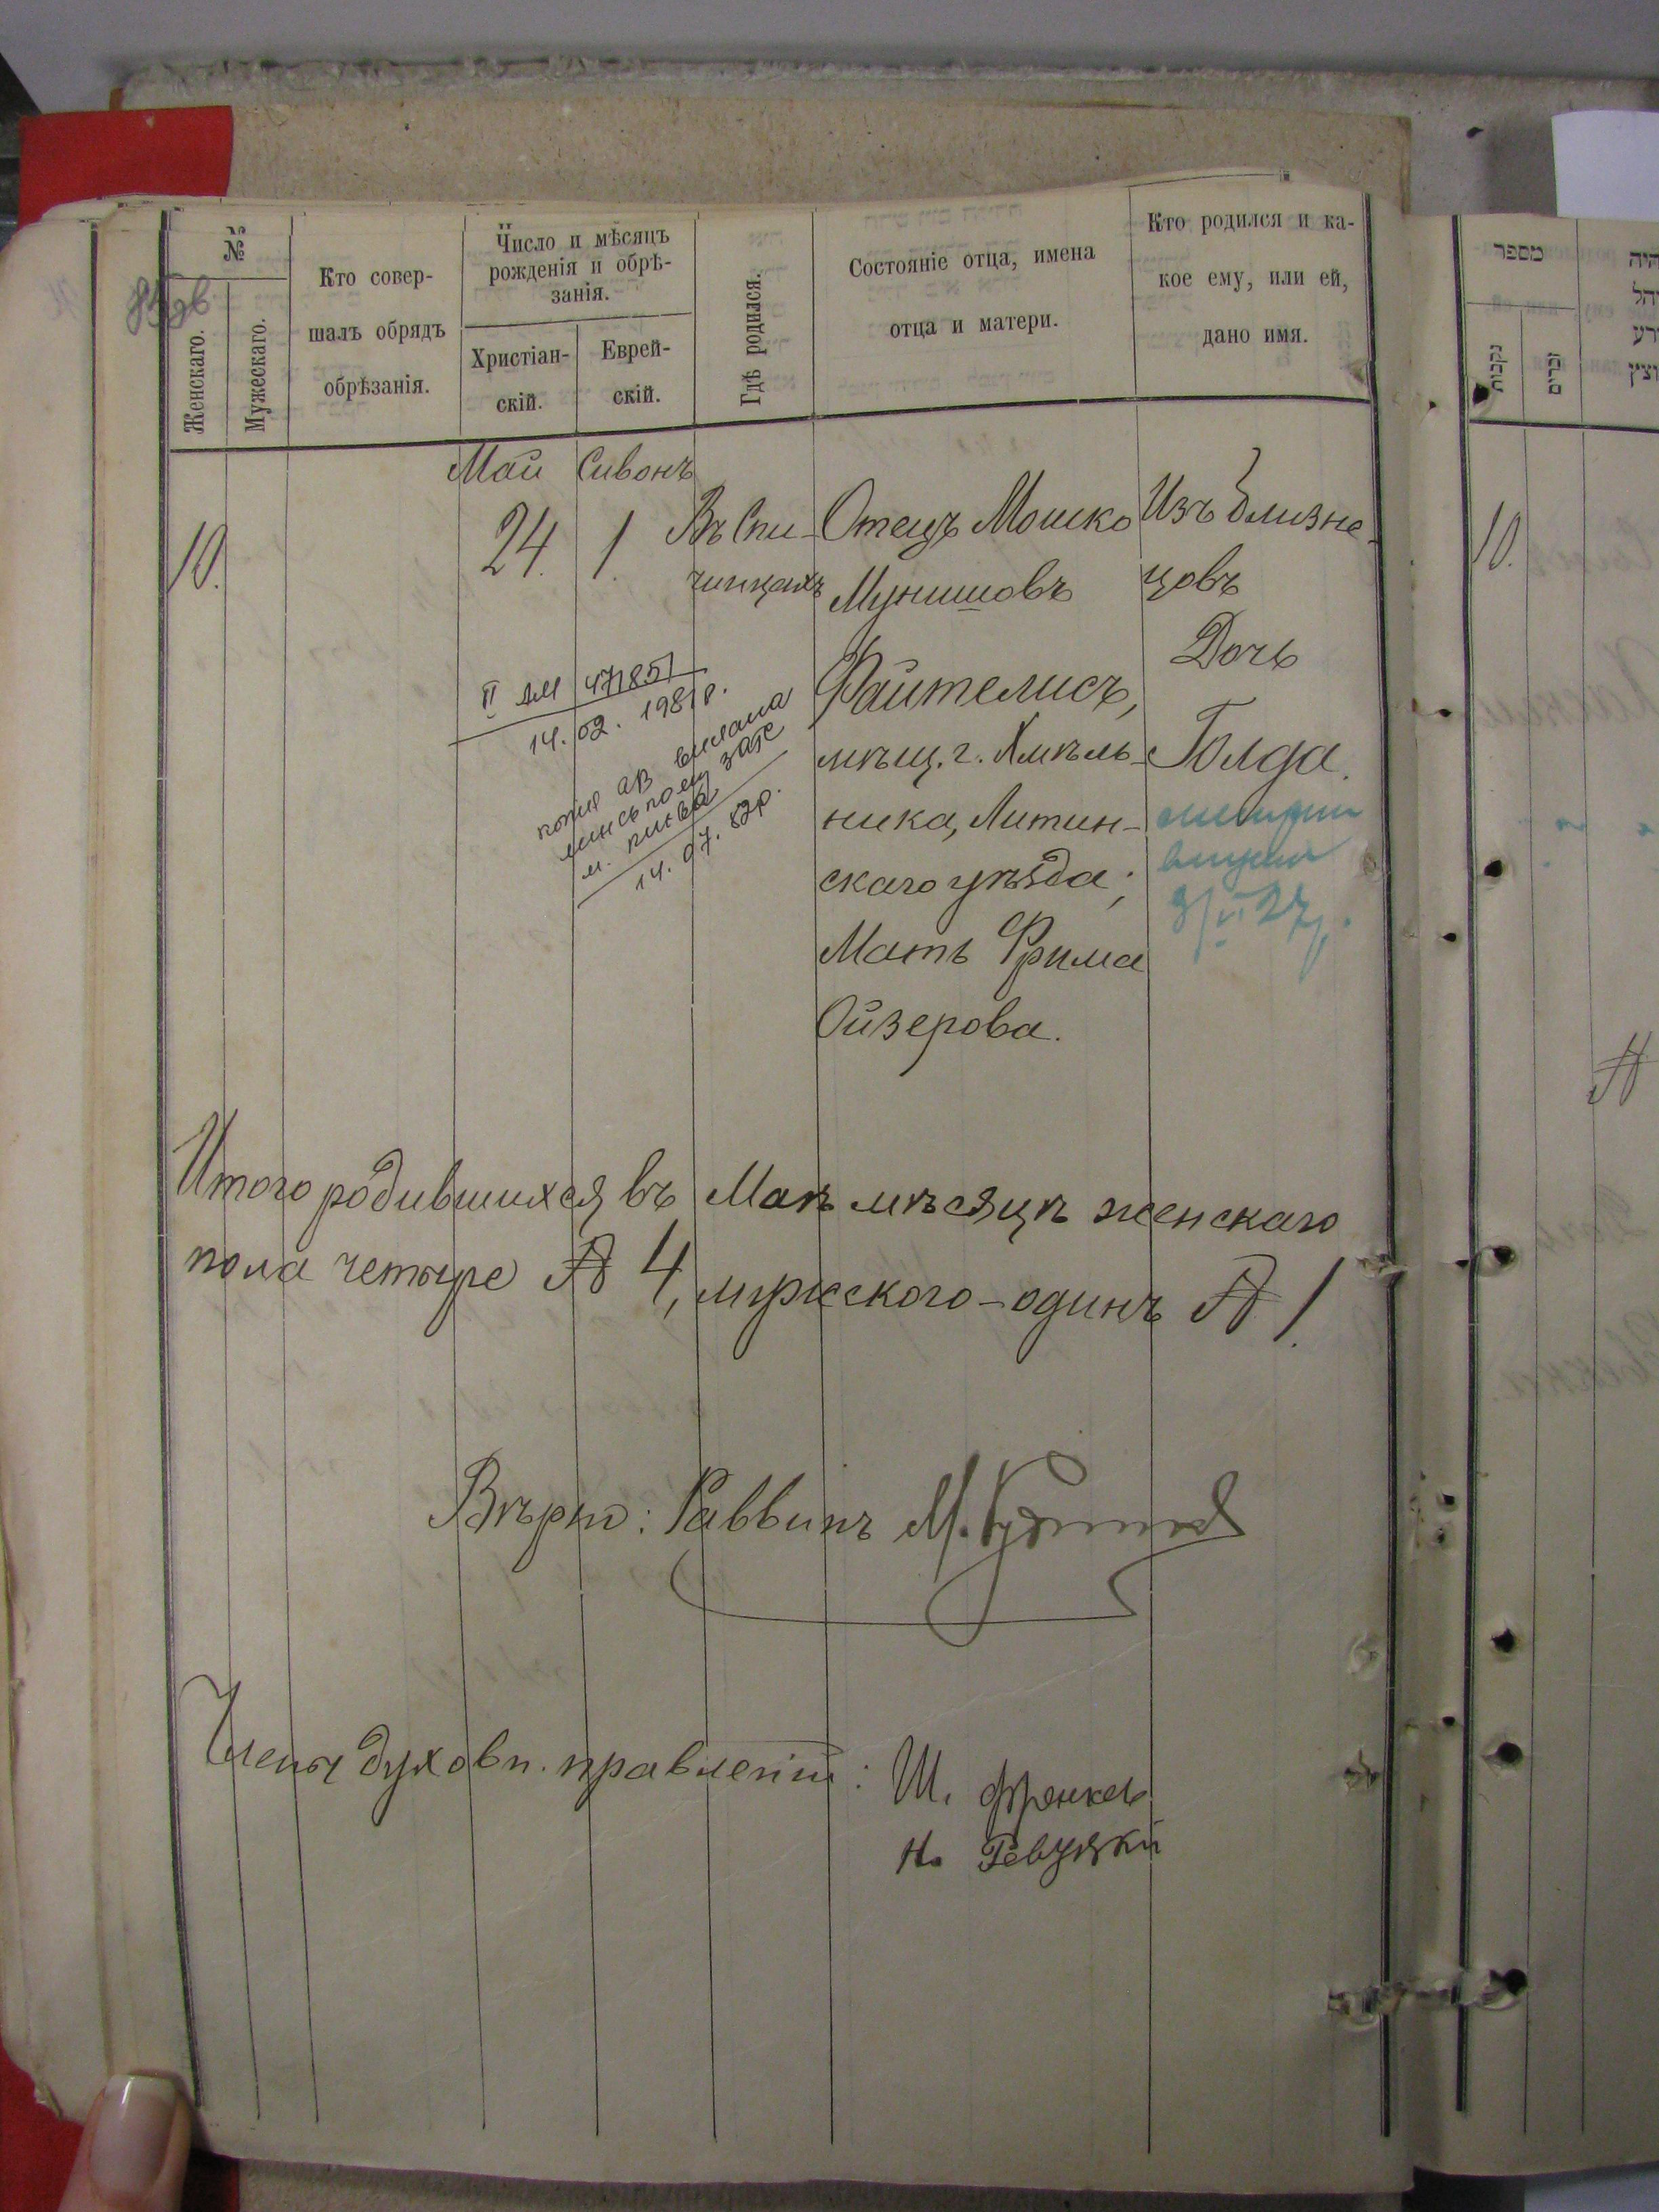 №
Женскаго.
Мужескаго.
Кто совер-
шалъ обрядъ
обрѣзанія.
Число и мѣсяцъ
рожденія и обрѣ-
занія.
Христіан-
скій.
Еврей-
скій.
Гдѣ родился.
Состояніе отца, имена
отца и матери.
Кто родился и ка-
кое ему, или ей,
дано имя.
Май Сивонъ
10.
24.
1.
Въ Спи-
чинцахъ
Отецъ Мошко
Мунишовъ
Файтелисъ,
мѣщ. г. Хмѣль-
ника, Литин-
скаго уѣзда;
Мать Фрима
Ойзерова.
Изъ близне-
цовъ
Дочь
Голда.
II АМ 471851
14.02.1981р.
копія ав вислана
м. Київа
14.07.82р.
Итого родившихся въ Маѣ мѣсяцѣ женскаго
пола четыре № 4, мужского-одинъ № 1.
Вѣрно: Раввинъ М.
Члены духовн. правленія:
Ш. Френкель
Н. Ревуцкий
מספר
נקבות
זכרים
10.